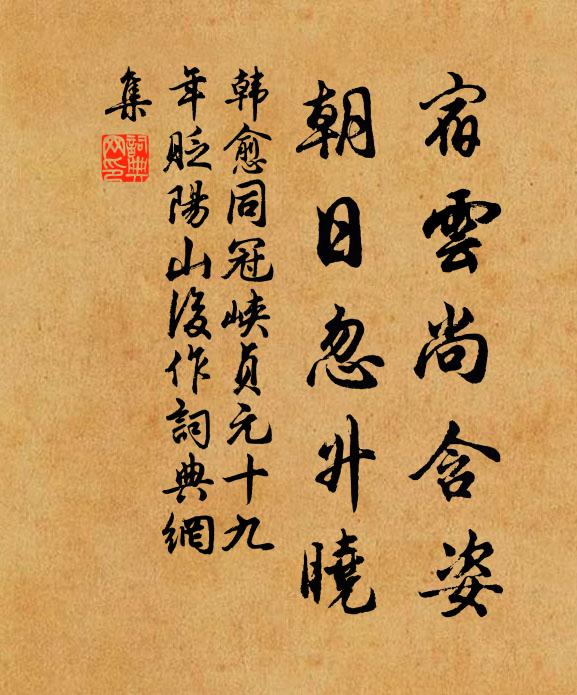 宿雲尚含姿
朝日忽升曉
韩愈同冠峽貞元十九
年貶陽山後作詞典網
集
詞典
网印